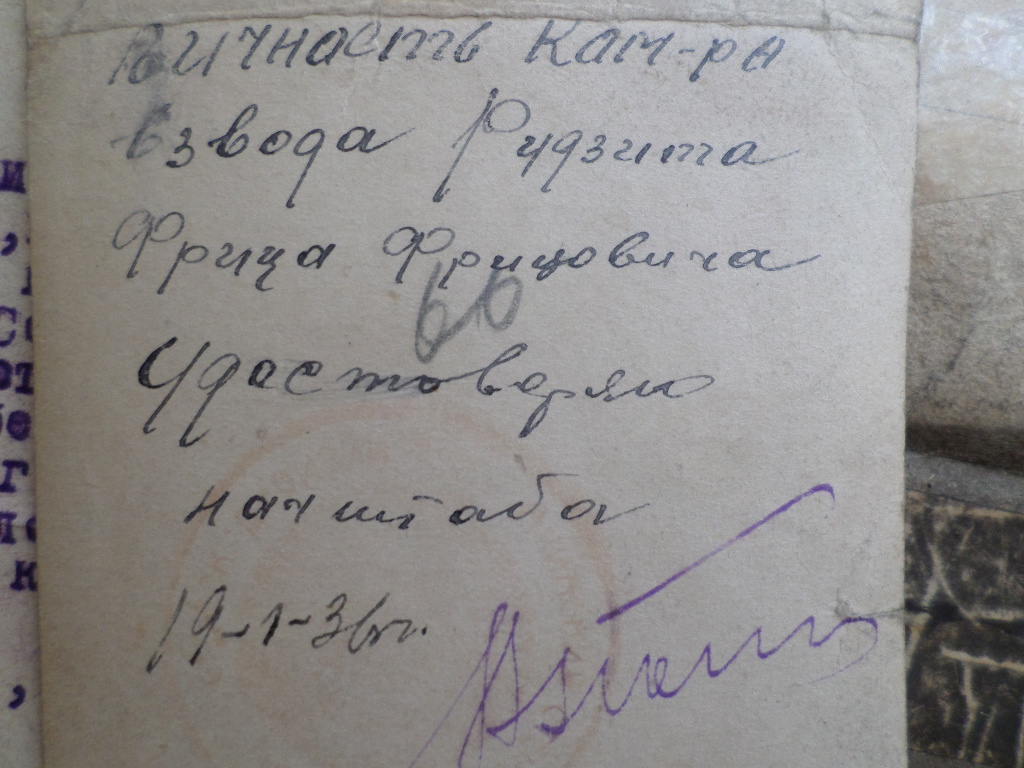 Личность Кам-ра
взвода Рудзита
Фрица Фрицовича
66
Удастоверяю
начштаба
19-1-36г.